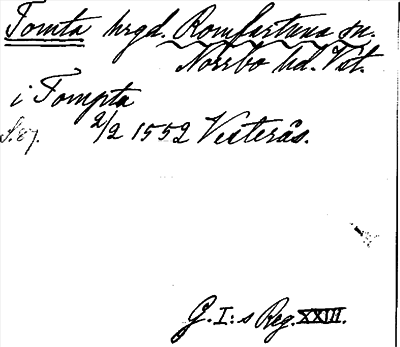 Tomta hrgd. Romfartuna sn.
Norrbo hd. Vstm.
i Tompta
S. 87. 2/2 1552 Vesterås.
G. I:s Reg. XXIII.